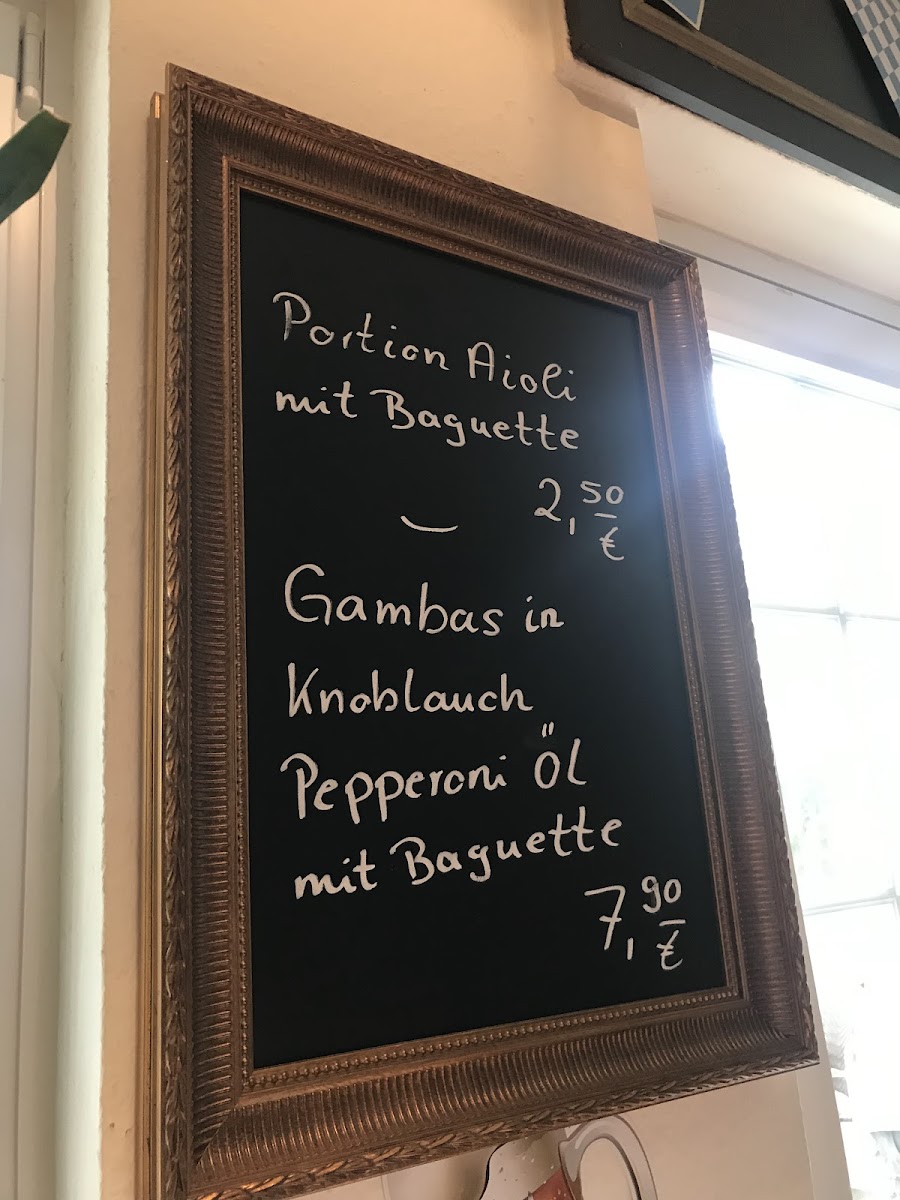 Portion Aioli
mit Baguette
2,50 €
Gambas in
Knoblauch
Pepperoni Öl
mit Baguette
7,90 €